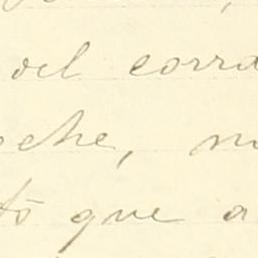 del corra
oche, n
tó que a